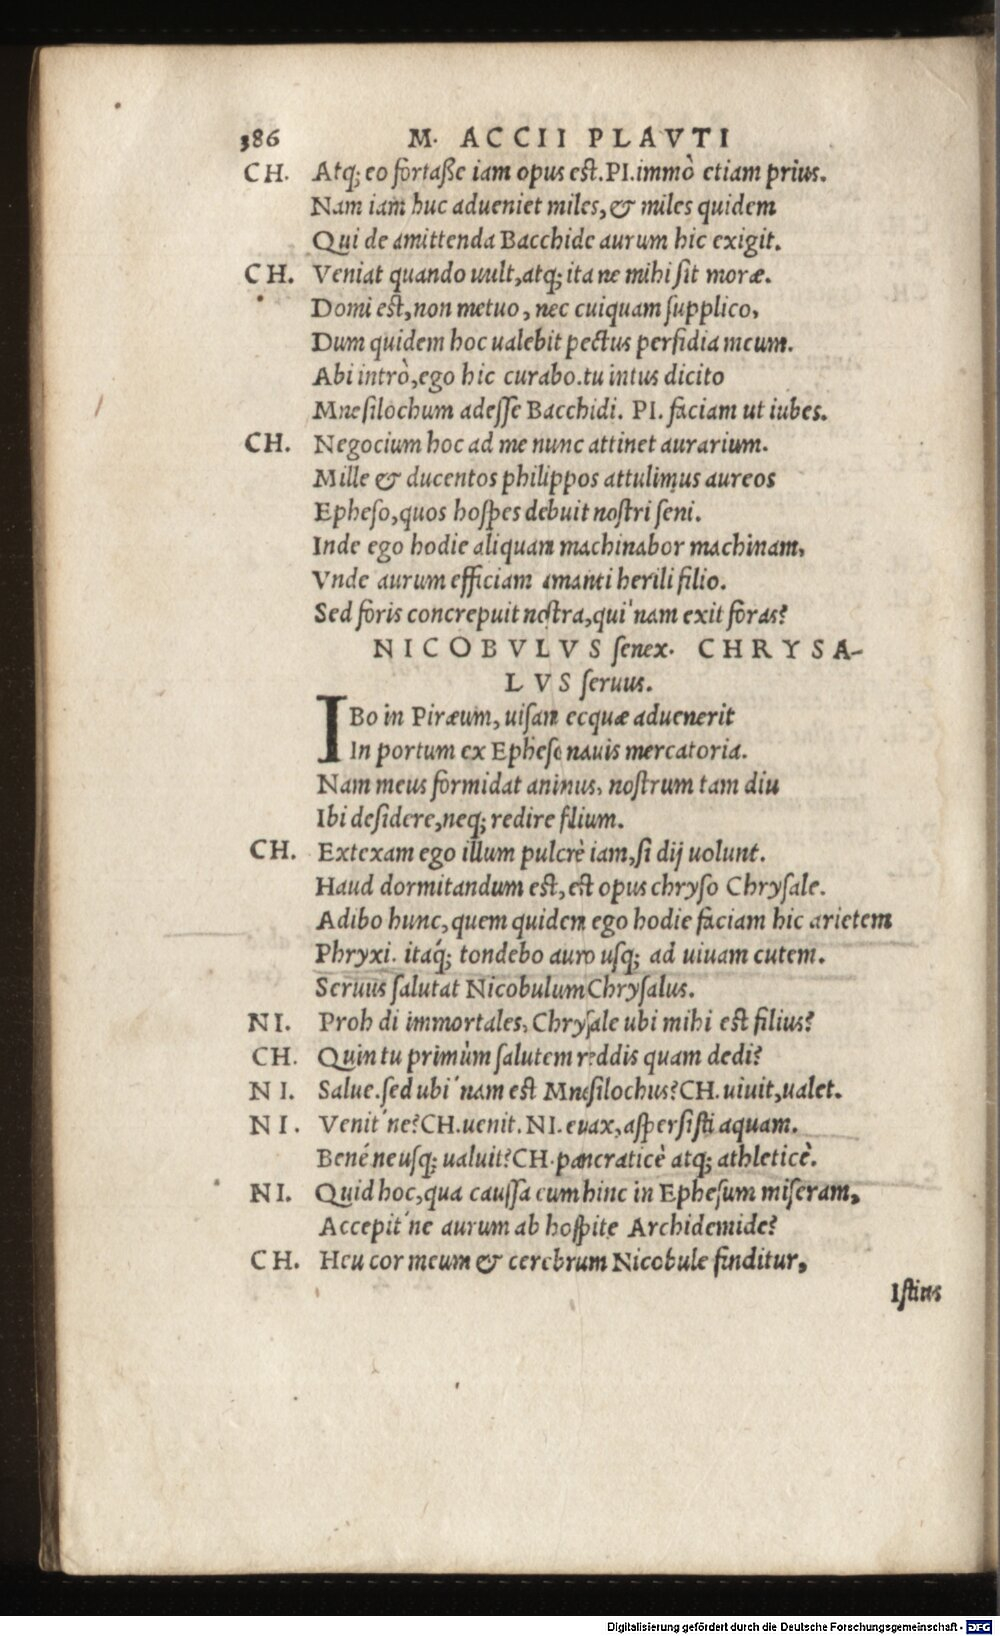 386 M. ACCII PLAVTI
CH. Atq; eo fortaße iam opus est. PI. immò etiam prius.
Nam iam huc adueniet miles, & miles quidem
Qui de amittenda Bacchide aurum hic exigit.
CH. Veniat quando uult, atq; ita ne mihi sit moræ.
Domi est, non metuo, nec cuiquam supplico,
Dum quidem hoc ualebit pectus perfidia meum.
Abi intrò, ego hic curabo. tu intus dicito
Mnesilochum adesse Bacchidi. PI. faciam ut iubes.
CH. Negocium hoc ad me nunc attinet aurarium.
Mille & ducentos philippos attulimus aureos
Epheso, quos hospes debuit nostri seni.
Inde ego hodie aliquam machinabor machinam,
Vnde aurum efficiam amanti herili filio.
Sed foris concrepuit nostra, qui'nam exit foras?
NICOBVLVS senex. CHRYSA-
LVS seruus.
IBo in Piræum, uisam ecquæ aduenerit
In portum ex Epheso nauis mercatoria.
Nam meus formidat animus, nostrum tam diu
Ibi desidere, neq; redire filium.
CH. Extexam ego illum pulcrè iam, si dij uolunt.
Haud dormitandum est, est opus chryso Chrysale.
Adibo hunc, quem quidem ego hodie faciam hic arietem
Phryxi. itáq; tondebo auro usq; ad uiuam cutem.
Seruus salutat Nicobulum Chrysalus.
NI. Proh di immortales, Chrysale ubi mihi est filius?
CH. Quin tu primùm salutem reddis quam dedi?
NI. Salue. sed ubi'nam est Mnesilochus? CH. uiuit, ualet.
NI. Venit'ne? CH. uenit. NI. euax, aspersisti aquam.
Bené ne usq; ualuit? CH. pancraticè atq; athleticè.
NI. Quid hoc, qua caussa eum hinc in Ephesum miseram,
Accepit'ne aurum ab hospite Archidemide?
CH. Heu cor meum & cerebrum Nicobule finditur,
Istius
Digitalisierung gefördert durch die Deutsche Forschungsgemeinschaft - DFG